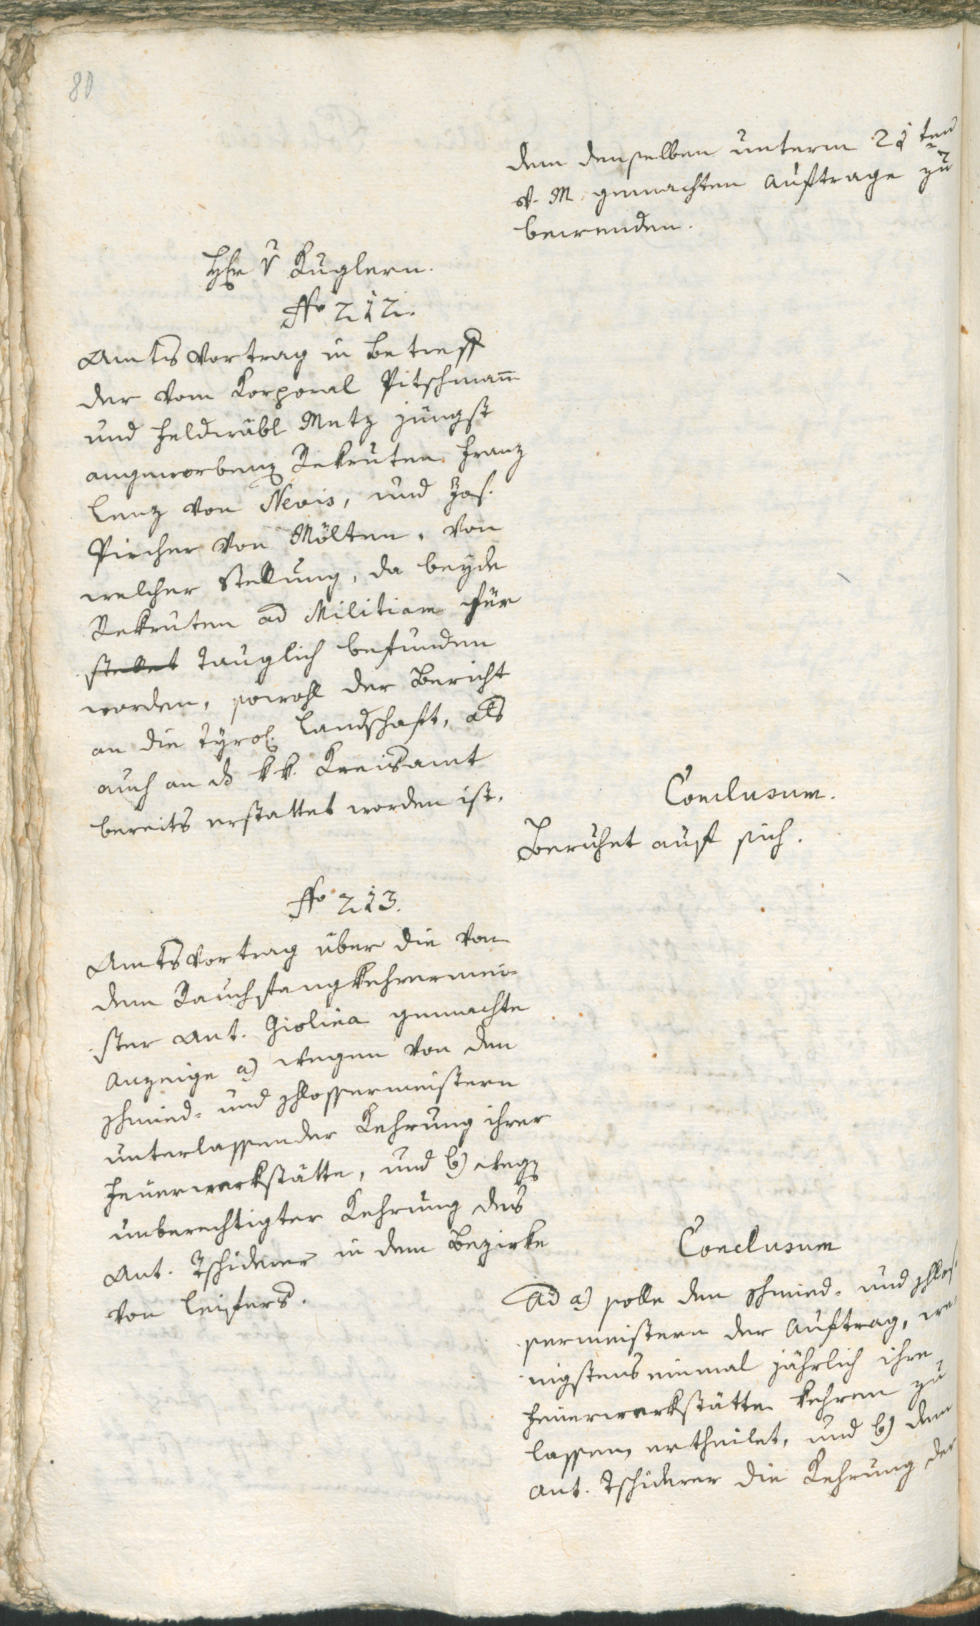 80
dem denselben unterm 21ten
v. M. gemachten Auftrage zu
bewenden.
Hr v Kuglern.
No 212.
Amtsvortrag in betreff
der vom Korporal Pitschmañ
und Feldwäbl Metz jüngst
angeworbenen Rekruten Franz
Lenz von Nevis, und Jos.
Pircher von Mölten, von
welcher Stellung, da beyde
Rekruten ad Militiam für
stellet tauglich befunden
worden, sowohl der Bericht
an die Tyrol. Landschaft, als
auch an das kk. Kreisamt
bereits erstattet worden ist.
Conclusum.
Beruhet auf sich.
No 213.
Amtsvortrag über die von
dem Rauchfangkehrermei-
ster Ant. Giolica gemachte
Anzeige a) wegen von den
Schmied- und Schlossermeistern
unterlassender Kehrung ihrer
Feuerwerkstätte, und b) wegen
unberechtigter Kehrung des
Ant. Tschiderer in dem Bezirke
von Leifers.
Conclusum
Ad a) solle den Schmied- und Schlos-
sermeistern der Auftrag, we-
nigstens einmal jährlich ihre
Feuerwerkstätte kehren zu
lassen, ertheilet, und b) dem
Ant. Tschiderer die Kehrung der